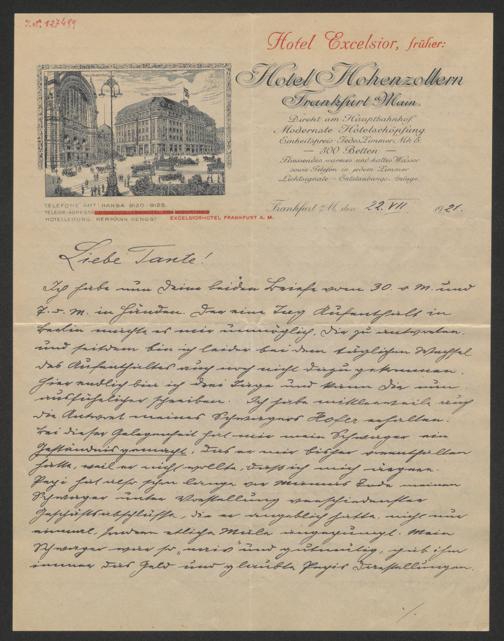 I.N. 127489
Hotel Excelsior, früher:
Hotel Hohenzollern
Frankfurt Main.
Direkt am Hauptbahnhof
Modernste Hotelschöpfung
Einheitspreis Jedes Zimmer Mk 5.
— 300 Betten —
Fliessendes warmes und kaltes Wasser
sowie Telefon in jedem Zimmer
Lichtsignale - Entstaubungs-Anlage.
TELEFONE AMT HANSA 9120-9125.
TELEGR.-ADRESSE
HOTELLEITUNG: HERMANN HENGST EXCELSIORHOTEL FRANKFURT A. M.
Frankfurt a/M, den 22. VII 1921.
Liebe Tante!
Ich habe nun Deine beiden Briefe vom 30 v M. und
7. d. M. in Händen. Der eine Tag Aufenthalt in
Berlin machte es mir unmöglich, Dir zu antworten
und seitdem bin ich leider bei dem täglichen Wechsel
des Aufenthaltes auch noch nicht dazu gekommen.
Hier endlich bin ich drei Tage und kann Dir nun
ausführlicher schreiben. Ich habe mittlerweile auch
die Antwort meines Schwagers Hofer erhalten.
Bei dieser Gelegenheit hat mir mein Schwager ein
Geständnis gemacht, das er mir bisher vorenthalten
hatte, weil er nicht wollte, dass ich mich ärgere.
hat also schon lange vor Mamas Tode meinen
Schwager unter Vorstellung verschiedenster
Geschäftsabschlüsse, die er angeblich hatte, nicht nur
einmal, sondern etliche Male angepumpt. Mein
Schwager war so „naiv" und gutmütig, gab ihm
immer das Geld und glaubte Darstellungen.
./.